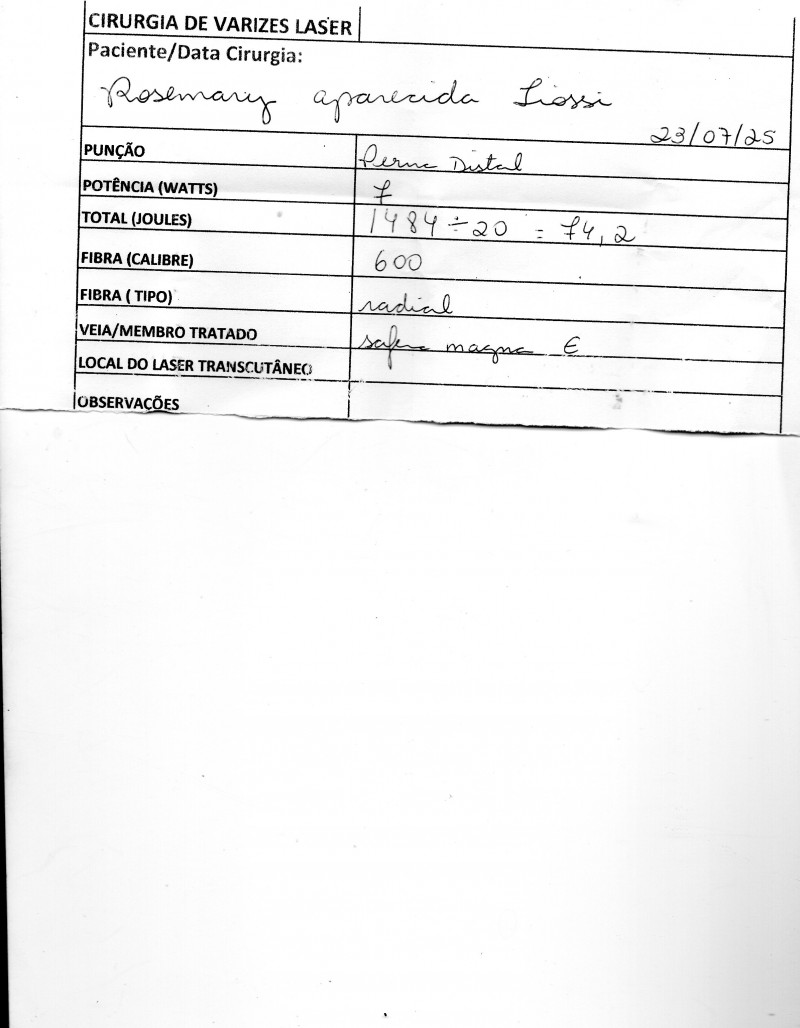 CIRURGIA DE VARIZES LASER
Paciente/Data Cirurgia:
Rosemary aparecida Liossi
23/07/25
PUNÇÃO Perna Distal
POTÊNCIA (WATTS) 7
TOTAL (JOULES) 1484 ÷ 20 = 74,2
FIBRA (CALIBRE) 600
FIBRA ( TIPO) radial
VEIA/MEMBRO TRATADO safena magna E
LOCAL DO LASER TRANSCUTÂNEO
OBSERVAÇÕES